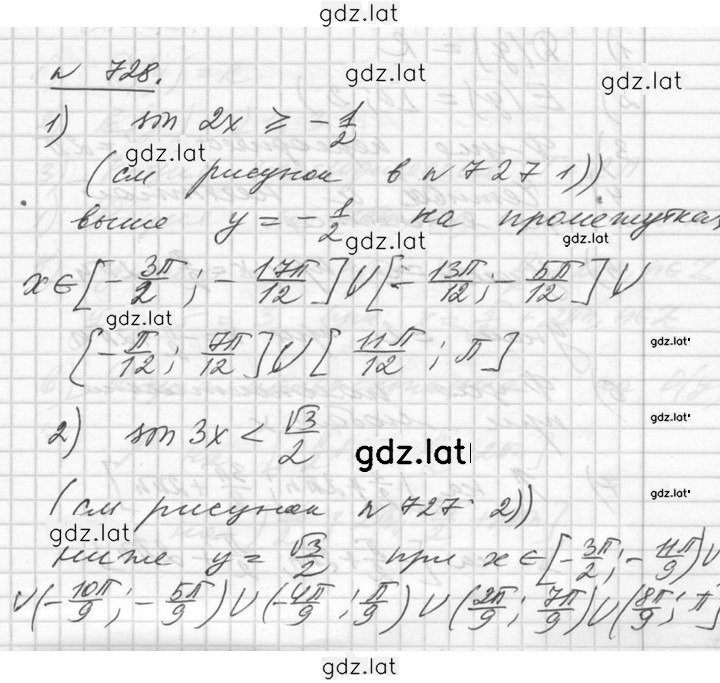 gdz.lat
№ 728.
gdz.lat
gdz.lat
1) sin 2x ≥ -1/2
gdz.lat
(см рисунок в №727 1))
выше y = -1/2 на промежутках
gdz.lat
gdz.lat
x ∈ [-3π/2; -17π/12] ∪ [-13π/12; -5π/12] ∪
gdz.lat
[-π/12; 7π/12] ∪ [11π/12; π]
gdz.lat
2) sin 3x < √3/2
gdz.lat
gdz.lat
(см рисунок №727 2))
gdz.lat
gdz.lat
ниже y = √3/2 при x ∈ [-3π/2; -11π/9) ∪
∪ (-10π/9; -5π/9) ∪ (-4π/9; π/9) ∪ (2π/9; 7π/9) ∪ (8π/9; π]
gdz.lat